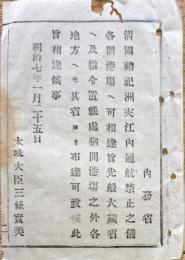 內務省
淸國糟記洲夾江內通航禁止之儀
各開港場ヘ可相達旨先般大藏省
ヘ及指令置候處猶開港場之外各
地方ヘモ其省ヨリ布達可致候此
旨相達候事
明治七年一月二十五日
太政大臣三條實美